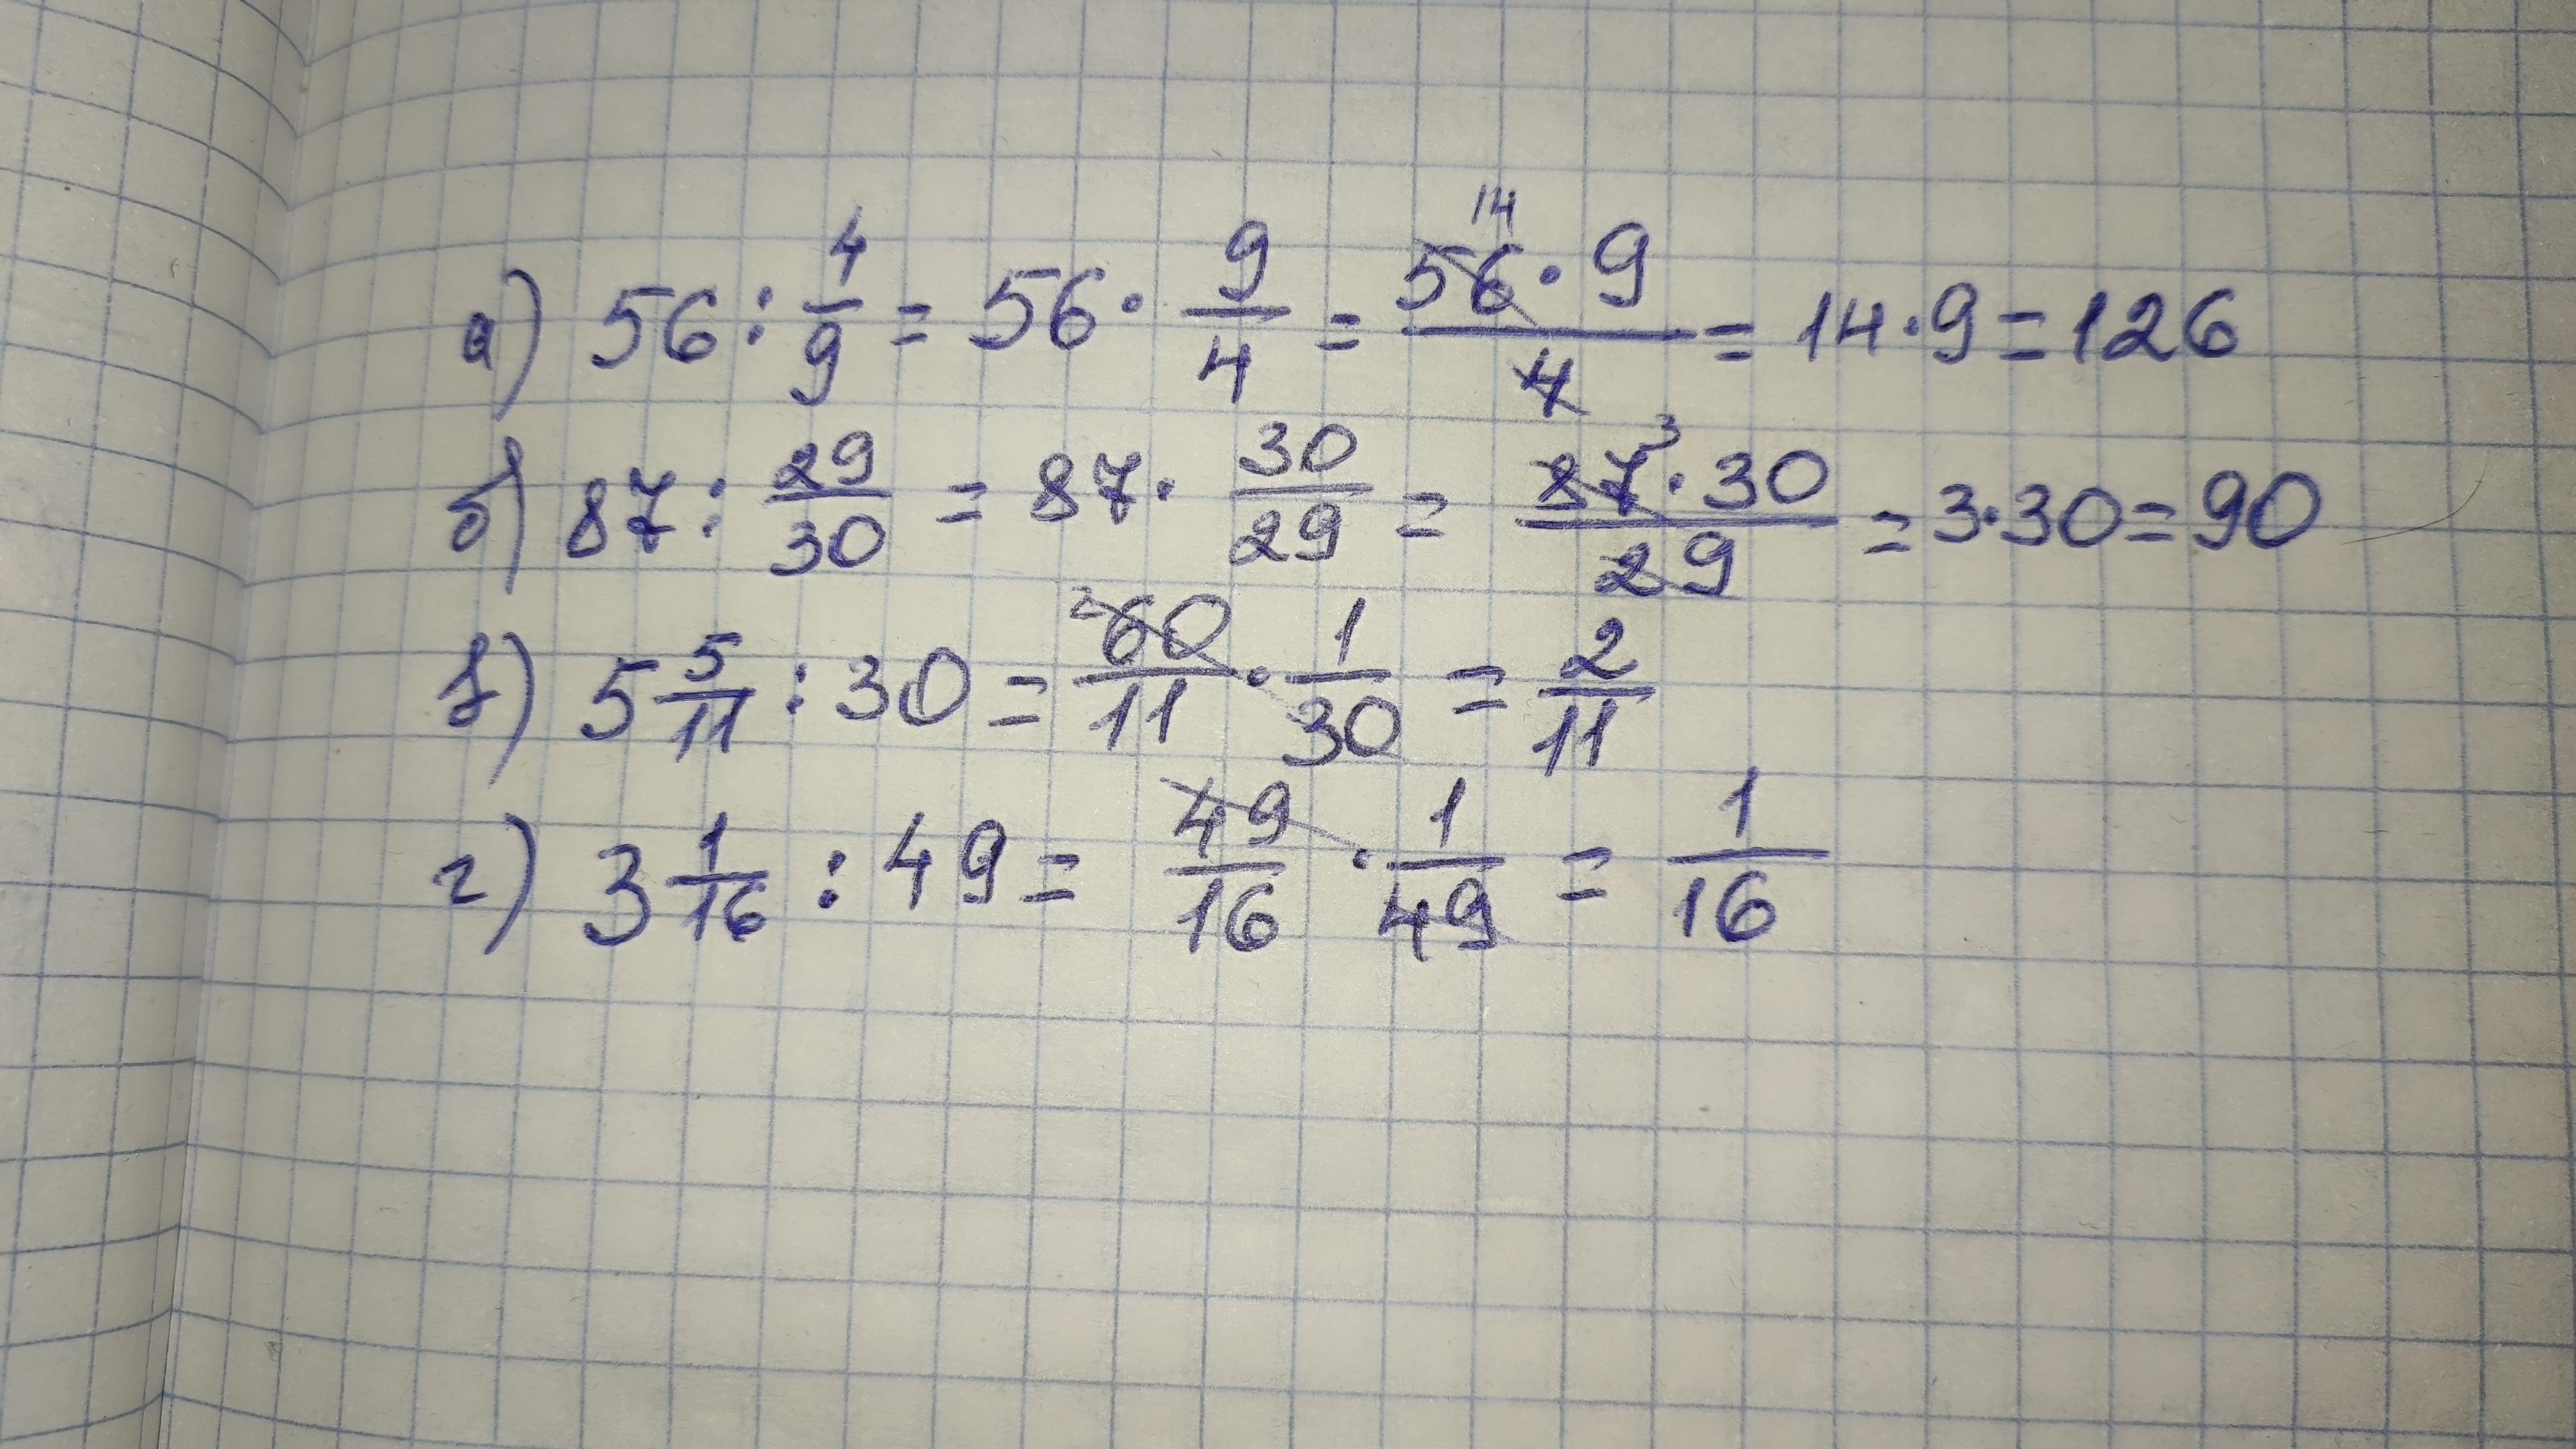 а) 56 : 4/9 = 56 · 9/4 = 56 · 9/4 = 14 · 9 = 126
б) 87 : 29/30 = 87 · 30/29 = 87 · 30/29 = 3 · 30 = 90
в) 5 5/11 : 30 = 60/11 · 1/30 = 2/11
г) 3 1/16 : 49 = 49/16 · 1/49 = 1/16